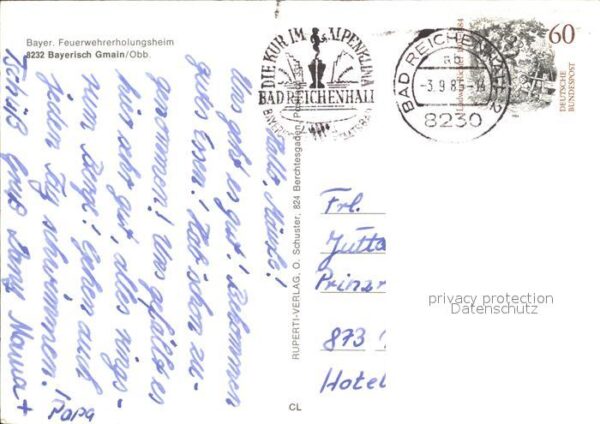 Bayer. Feuerwehrerholungsheim
8232 Bayerisch Gmain/Obb.
DIE KUR IM ALPENKLIMA
BAD REICHENHALL
BAD REICHENHALL 2
ab
-3.9.85-14
8230
60
DEUTSCHE
BUNDESPOST
Hallo, Mäusle!
Uns geht es gut! Bekommen
gutes Essen! Hab schon zu-
genommen! Uns gefällt es
hier sehr gut, alles rings-
rum Berge! Gehen auch
jeden Tag schwimmen!
Tschüß Gruß Mama +
Papa
RUPERTI-VERLAG, O. Schuster, 824 Berchtesgaden
CL
Frl.
Jutta
873
Hotel
privacy protection
Datenschutz